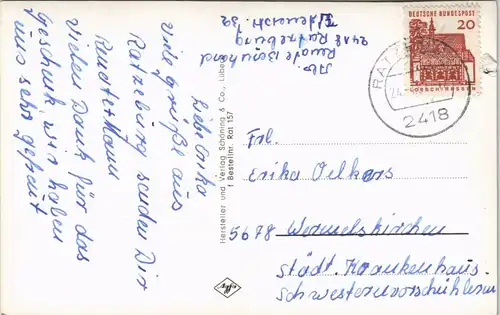 Liebe Erika
viele Grüße aus
Ratzeburg senden Dir
Vielen Dank für das
Geschenk wir haben
uns sehr gefreut
Abs.
2418 Ratzeburg
Hersteller und Verlag Schöning & Co., Lübeck
f Bestellnr. Rat 157
DEUTSCHE BUNDESPOST
20
LORSCH/HESSEN
RATZ
2418
Frl.
Erika Oelkers
5678 Wermelskirchen
Städt. Krankenhaus
Schwesternvorschülerin
Agfa